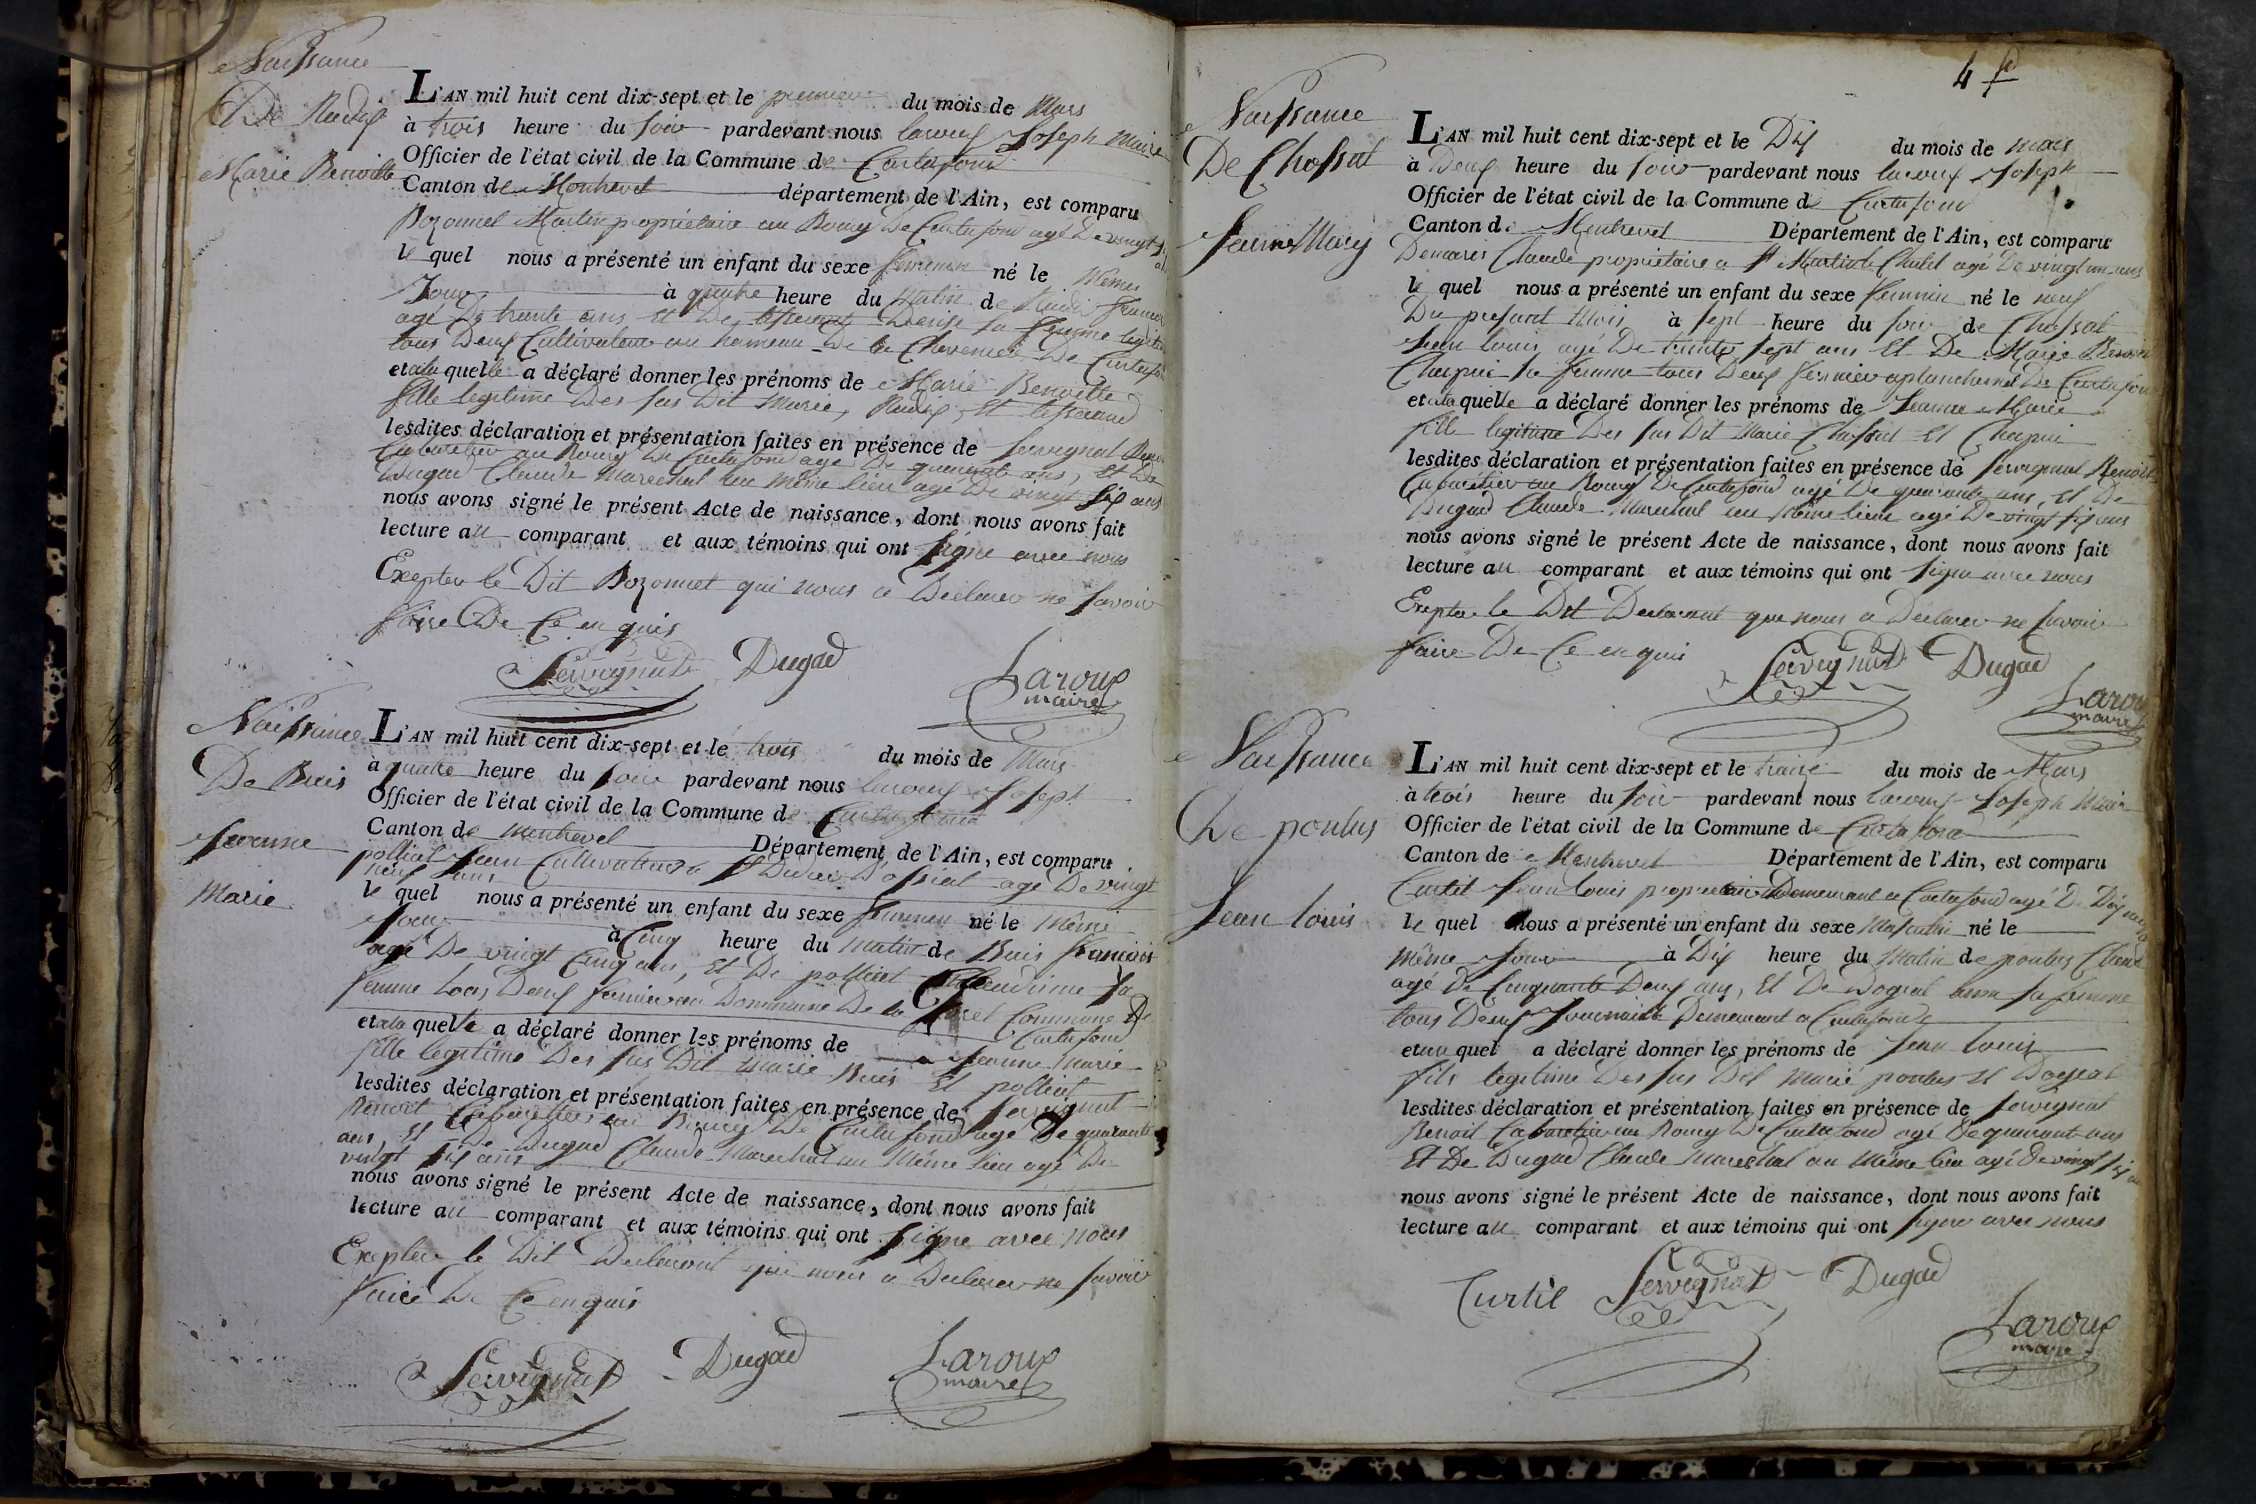 Naissance
De
Marie Benoitte
L'AN mil huit cent dix-sept et le premier du mois de Mars
à trois heure du soir pardevant nous laroux Joseph Maire
Officier de l'état civil de la Commune de Curtafond
Canton de Montrevel département de l'Ain, est comparu
Bozonnet Martin propriétaire au Bourg De Curtafond agé De vingt
le quel nous a présenté un enfant du sexe feminin né le même
Jour à quatre heure du matin de
agé De trente ans et De Denise sa femme legitime
tous Deux Cultivateur au hameau De la De Curtafond
et a la quelle a déclaré donner les prénoms de Marie Benoitte
fille legitime Des sus Dit Marié, et
lesdites déclaration et présentation faites en présence de Servignat Benoit
Cabaretier au Bourg De Curtafond agé De quarante ans, et De
Dugad Claude Marechal au même lieu agé De vingt six ans
nous avons signé le présent Acte de naissance, dont nous avons fait
lecture au comparant et aux témoins qui ont signe avec nous
Exepter le Dit Bozonnet qui nous a Declarer ne savoir
faire De Ce en quis
Servignat Dugad Laroux
maire
Naissance
De Buis
Jeanne
Marie
L'AN mil huit cent dix-sept et le trois du mois de Mars
à quatre heure du soir pardevant nous laroux Joseph
Officier de l'état civil de la Commune de Curtafond
Canton de Montrevel Département de l'Ain, est comparu
polliat Jean Cultivateur a St Didier D'ossiat agé De vingt
neuf ans
le quel nous a présenté un enfant du sexe feminin né le même
Jour à Cinq heure du matin de Buis francois
agé De vingt Cinq ans, et De polliat Claudine sa
femme tous Deux fermier au Dommaine De la foret Commune De
Curtafond
et a la quelle a déclaré donner les prénoms de Jeanne Marie
fille legitime Des sus Dit Marié Buis Et polliat
lesdites déclaration et présentation faites en présence de Servignat
Benoit Cabaretier au Bourg De Curtafond agé De quarante
ans, et De Dugad Claude Marechal au même lieu agé De
vingt six ans
nous avons signé le présent Acte de naissance, dont nous avons fait
lecture au comparant et aux témoins qui ont signe avec nous
Exepter le Dit Declarant qui nous a Declarer ne savoir
faire De Ce en quis
Servignat Dugad Laroux
maire
4
Naissance
De Chossat
Jeanne Marie
L'AN mil huit cent dix-sept et le Dix du mois de mars
à Deux heure du soir pardevant nous laroux Joseph
Officier de l'état civil de la Commune de Curtafond
Canton de Montrevel Département de l'Ain, est comparu
Demares Claude propriétaire a St Martin le Chatel agé De vingt un ans
le quel nous a présenté un enfant du sexe feminin né le neuf
Du present Mois à sept heure du soir de Chossat
Jean louis agé De trente sept ans Et De Marie
Chapui sa femme tous Deux fermier a De Curtafond
et a la quelle a déclaré donner les prénoms de Jeanne Marie
fille legitime Des sus Dit Marié Chossat Et Chapui
lesdites déclaration et présentation faites en présence de Servignat Benoit
Cabaretier au Bourg De Curtafond agé De quarante ans, Et De
Dugad Claude Marechal au même lieu agé De vingt six ans
nous avons signé le présent Acte de naissance, dont nous avons fait
lecture au comparant et aux témoins qui ont signe avec nous
Exepter le Dit Declarant que nous a Declarer ne savoir
faire De Ce en quis
Servignat Dugad Laroux
maire
Naissance
De poulus
Jean louis
L'AN mil huit cent dix-sept et le traize du mois de Mars
à trois heure du soir pardevant nous laroux Joseph Maire
Officier de l'état civil de la Commune de Curtafond
Canton de Montrevel Département de l'Ain, est comparu
Curtil Jean louis propriétaire Demeurant a Curtafond agé De
le quel nous a présenté un enfant du sexe Masculin né le
même Jour à Dix heure du Matin de poulus Claude
agé De Cinquante Deux ans, Et De Dogiat anne sa femme
tous Deux Journaille Demeurant a Curtafond
et au quel a déclaré donner les prénoms de Jean louis
fils legitime Des sus Dit Marié poulus Et Dogiat
lesdites déclaration et présentation faites en présence de Servignat
Benoit Cabaretier au Bourg De Curtafond agé De quarante ans
Et De Dugad Claude Marechal au même lieu agé De vingt six ans
nous avons signé le présent Acte de naissance, dont nous avons fait
lecture au comparant et aux témoins qui ont signe avec nous
Curtil Servignat Dugad
Laroux
maire